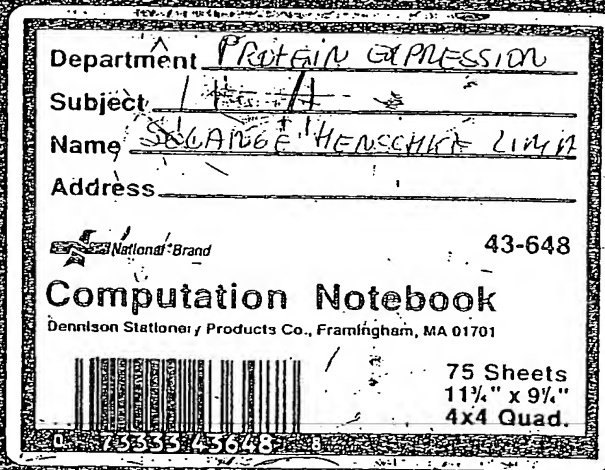 Department PROTEIN EXPRESSION
Subject
Name SOLANGE HENSCHKE LIMA
Address
National Brand
43-648
Computation Notebook
Dennison Stationery Products Co., Framingham, MA 01701
75 Sheets
11¾" x 9¼"
4x4 Quad.
0 73333 43648 8